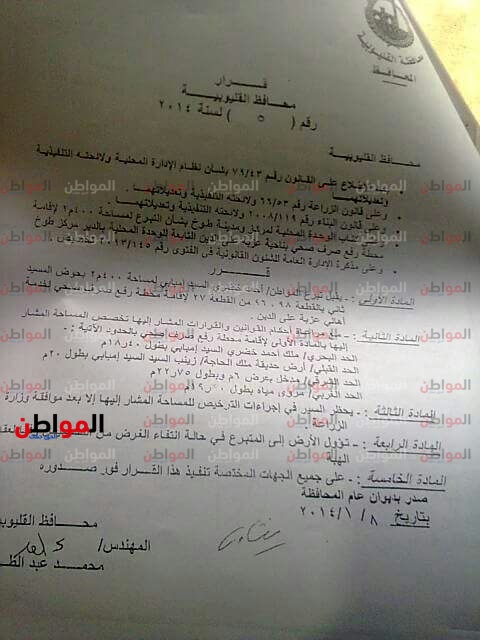 محافظة القليوبية
المحافظ
قرار
محافظ القليوبية
رقم ( ٥ ) لسنة ٢٠١٤
محافظ القليوبية
على القانون رقم ٧٩/٤٣ بشأن نظام الإدارة المحلية ولائحته التنفيذية
وتعديلاتهما
وعلى قانون الزراعة رقم ٦٦/٥٣ ولائحته التنفيذية وتعديلاتهما
وعلى قانون البناء رقم ٢٠٠٨/١١٩ ولائحته التنفيذية وتعديلاتهما
الوحدة المحلية لمركز ومدينة طوخ بشأن التبرع لمساحة ٤٠٠م٢ لإقامة
محطة رفع صرف صحي بناحية عزبة الدين التابعة للوحدة المحلية بالدير مركز طوخ
وعلى مذكرة الإدارة العامة للشئون القانونية في الفتوى رقم
قرر
المادة الأولى :- يقبل تبرع المواطن/ أحمد خضري السيد إمبابي لمساحة ٤٠٠م٢ بحوض السيد
ثاني بالقطعة ٩٨ ، ٩٦ من القطعة ٢٧ لإقامة محطة رفع صرف صحي لخدمة
أهالي عزبة على الدين
المادة الثانية :- مع مراعاة أحكام القوانين والقرارات المشار إليها تخصص المساحة المشار
إليها بالمادة الأولى لإقامة محطة رفع صرف صحي بالحدود الآتية :-
الحد البحري/ ملك أحمد خضري السيد إمبابي بطول ١٨٫٤٠م
الحد القبلي/ أرض حديقة ملك الحاجة/ زينب السيد السيد إمبابي بطول ٢٠م
الحد الشرقي/ مدخل بعرض ٦م وبطول ٢٢٫٧٥م
الحد الغربي/ مروى مياه بطول
المادة الثالثة :- يحظر السير في إجراءات الترخيص للمساحة المشار إليها إلا بعد موافقة وزارة
الزراعة
المادة الرابعة :- تؤول الأرض إلى المتبرع في حالة انتفاء الغرض من
الهبة
المادة الخامسة :- على جميع الجهات المختصة تنفيذ هذا القرار فور صدوره
صدر بديوان عام المحافظة
بتاريخ ٢٠١٤/١/٨
محافظ القليوبية
المهندس/
محمد عبد الظ
المواطن